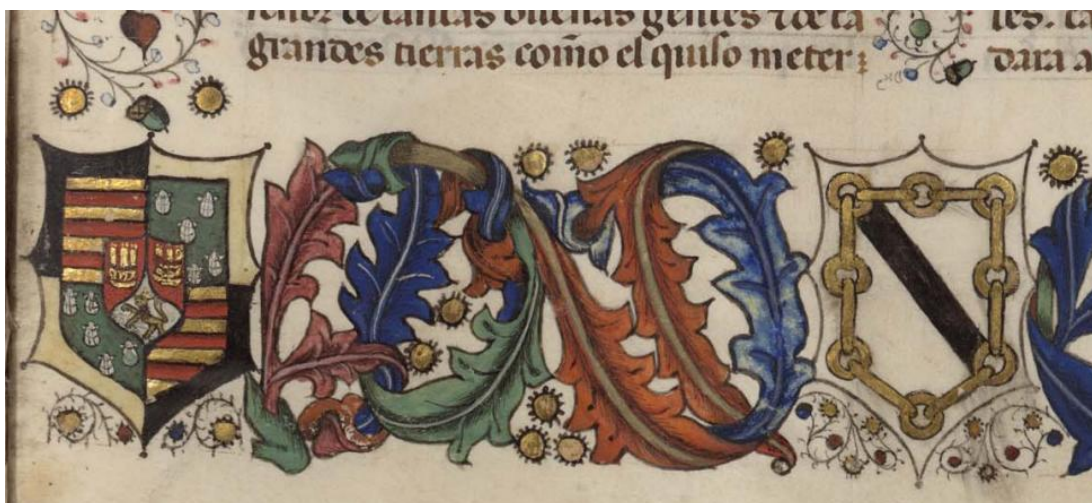 señor de tantas buenas gentes ⁊ de ta
grandes tierras com̃o el quiso meter
dara a